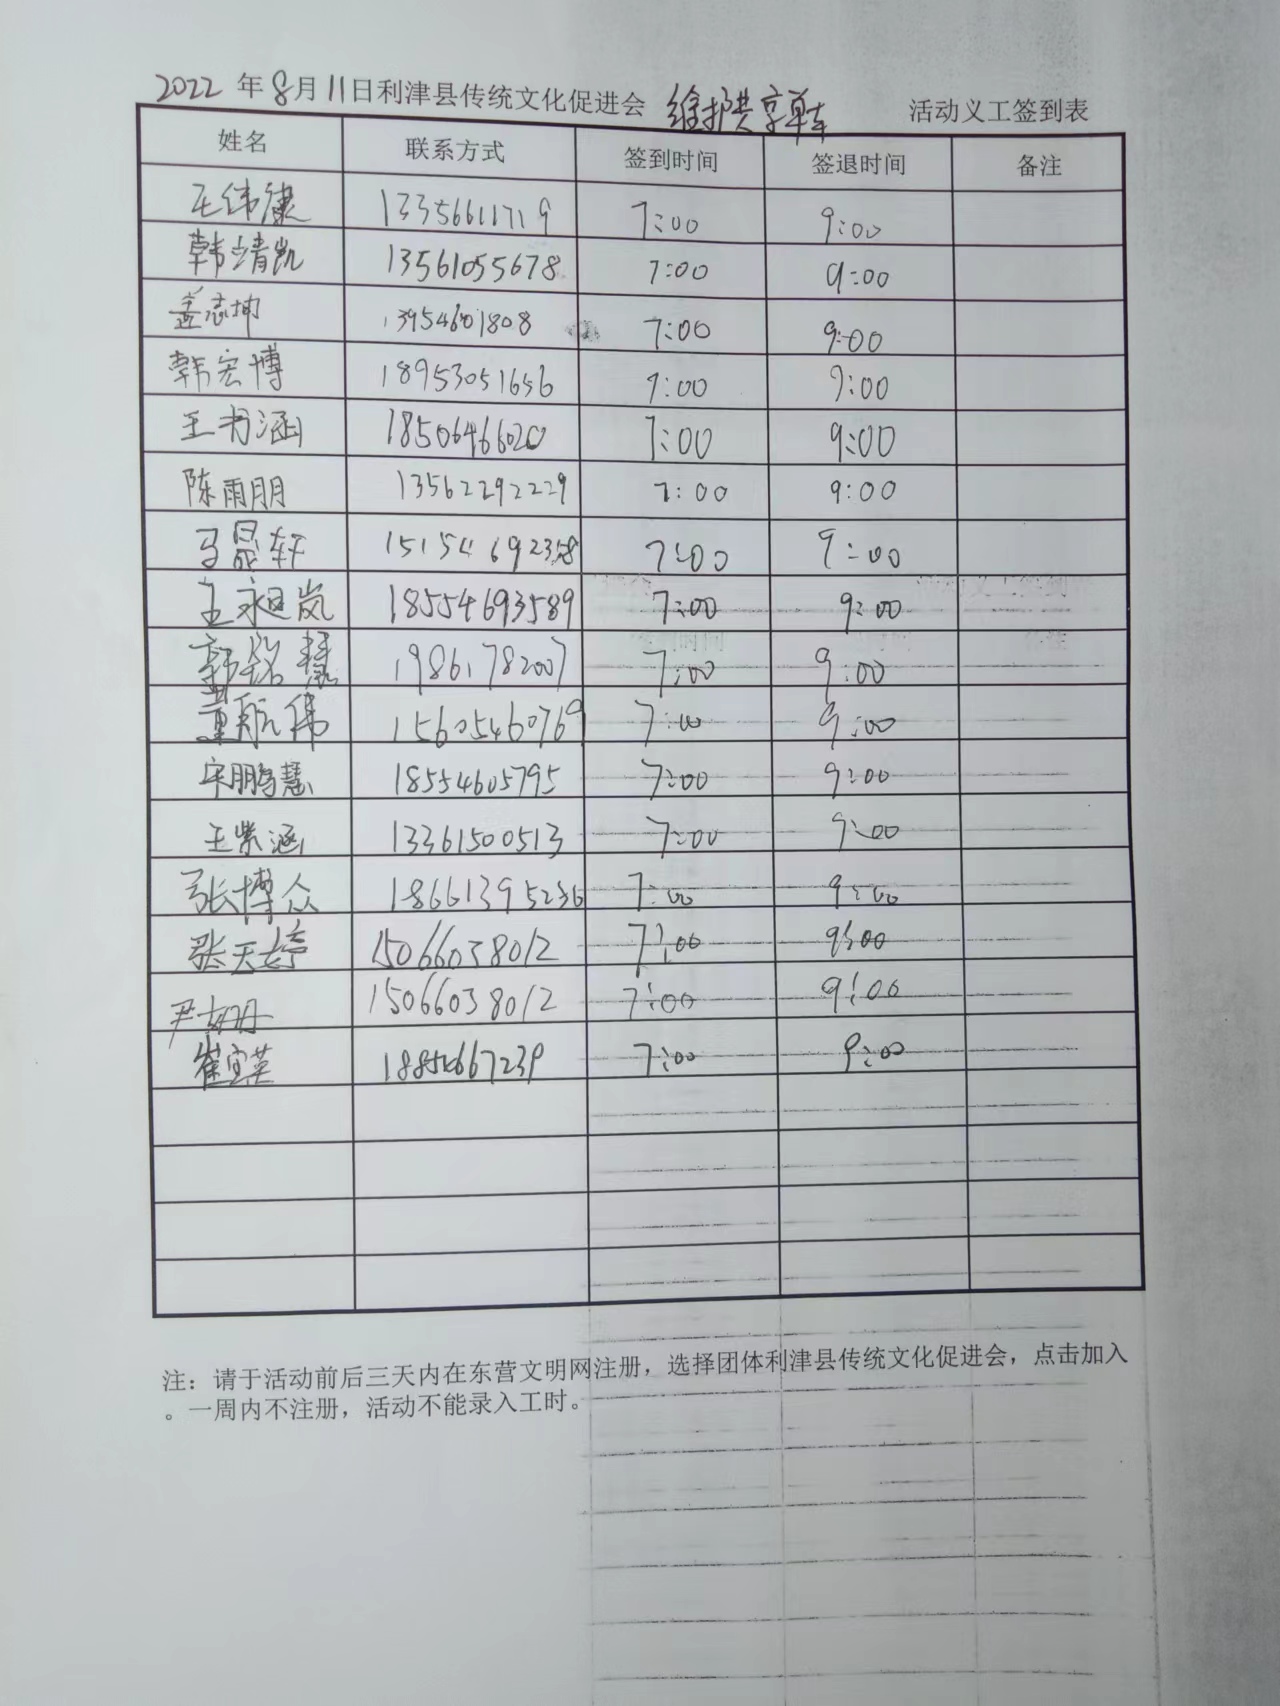 2022 年 8月 11日利津县传统文化促进会 维护共享单车 活动义工签到表
姓名 联系方式 签到时间 签退时间 备注
王纬康 13356611719 7:00 9:00
韩靖凯 13561055678 7:00 9:00
盖志坤 13954601808 7:00 9:00
韩宏博 18953051656 7:00 9:00
王书涵 18506466020 7:00 9:00
陈雨朋 13562292229 7:00 9:00
马晟轩 15154692358 7:00 9:00
王昶岚 18554693589 7:00 9:00
韩铭慧 19861782007 7:00 9:00
董航伟 15605460769 7:00 9:00
宋鹏慧 18554605795 7:00 9:00
王紫涵 13361500513 7:00 9:00
张博众 18661395236 7:00 9:00
张天婷 15066038012 7:00 9:00
尹 15066038012 7:00 9:00
崔宝英 7:00 9:00
注：请于活动前后三天内在东营文明网注册，选择团体利津县传统文化促进会，点击加入
。一周内不注册，活动不能录入工时。